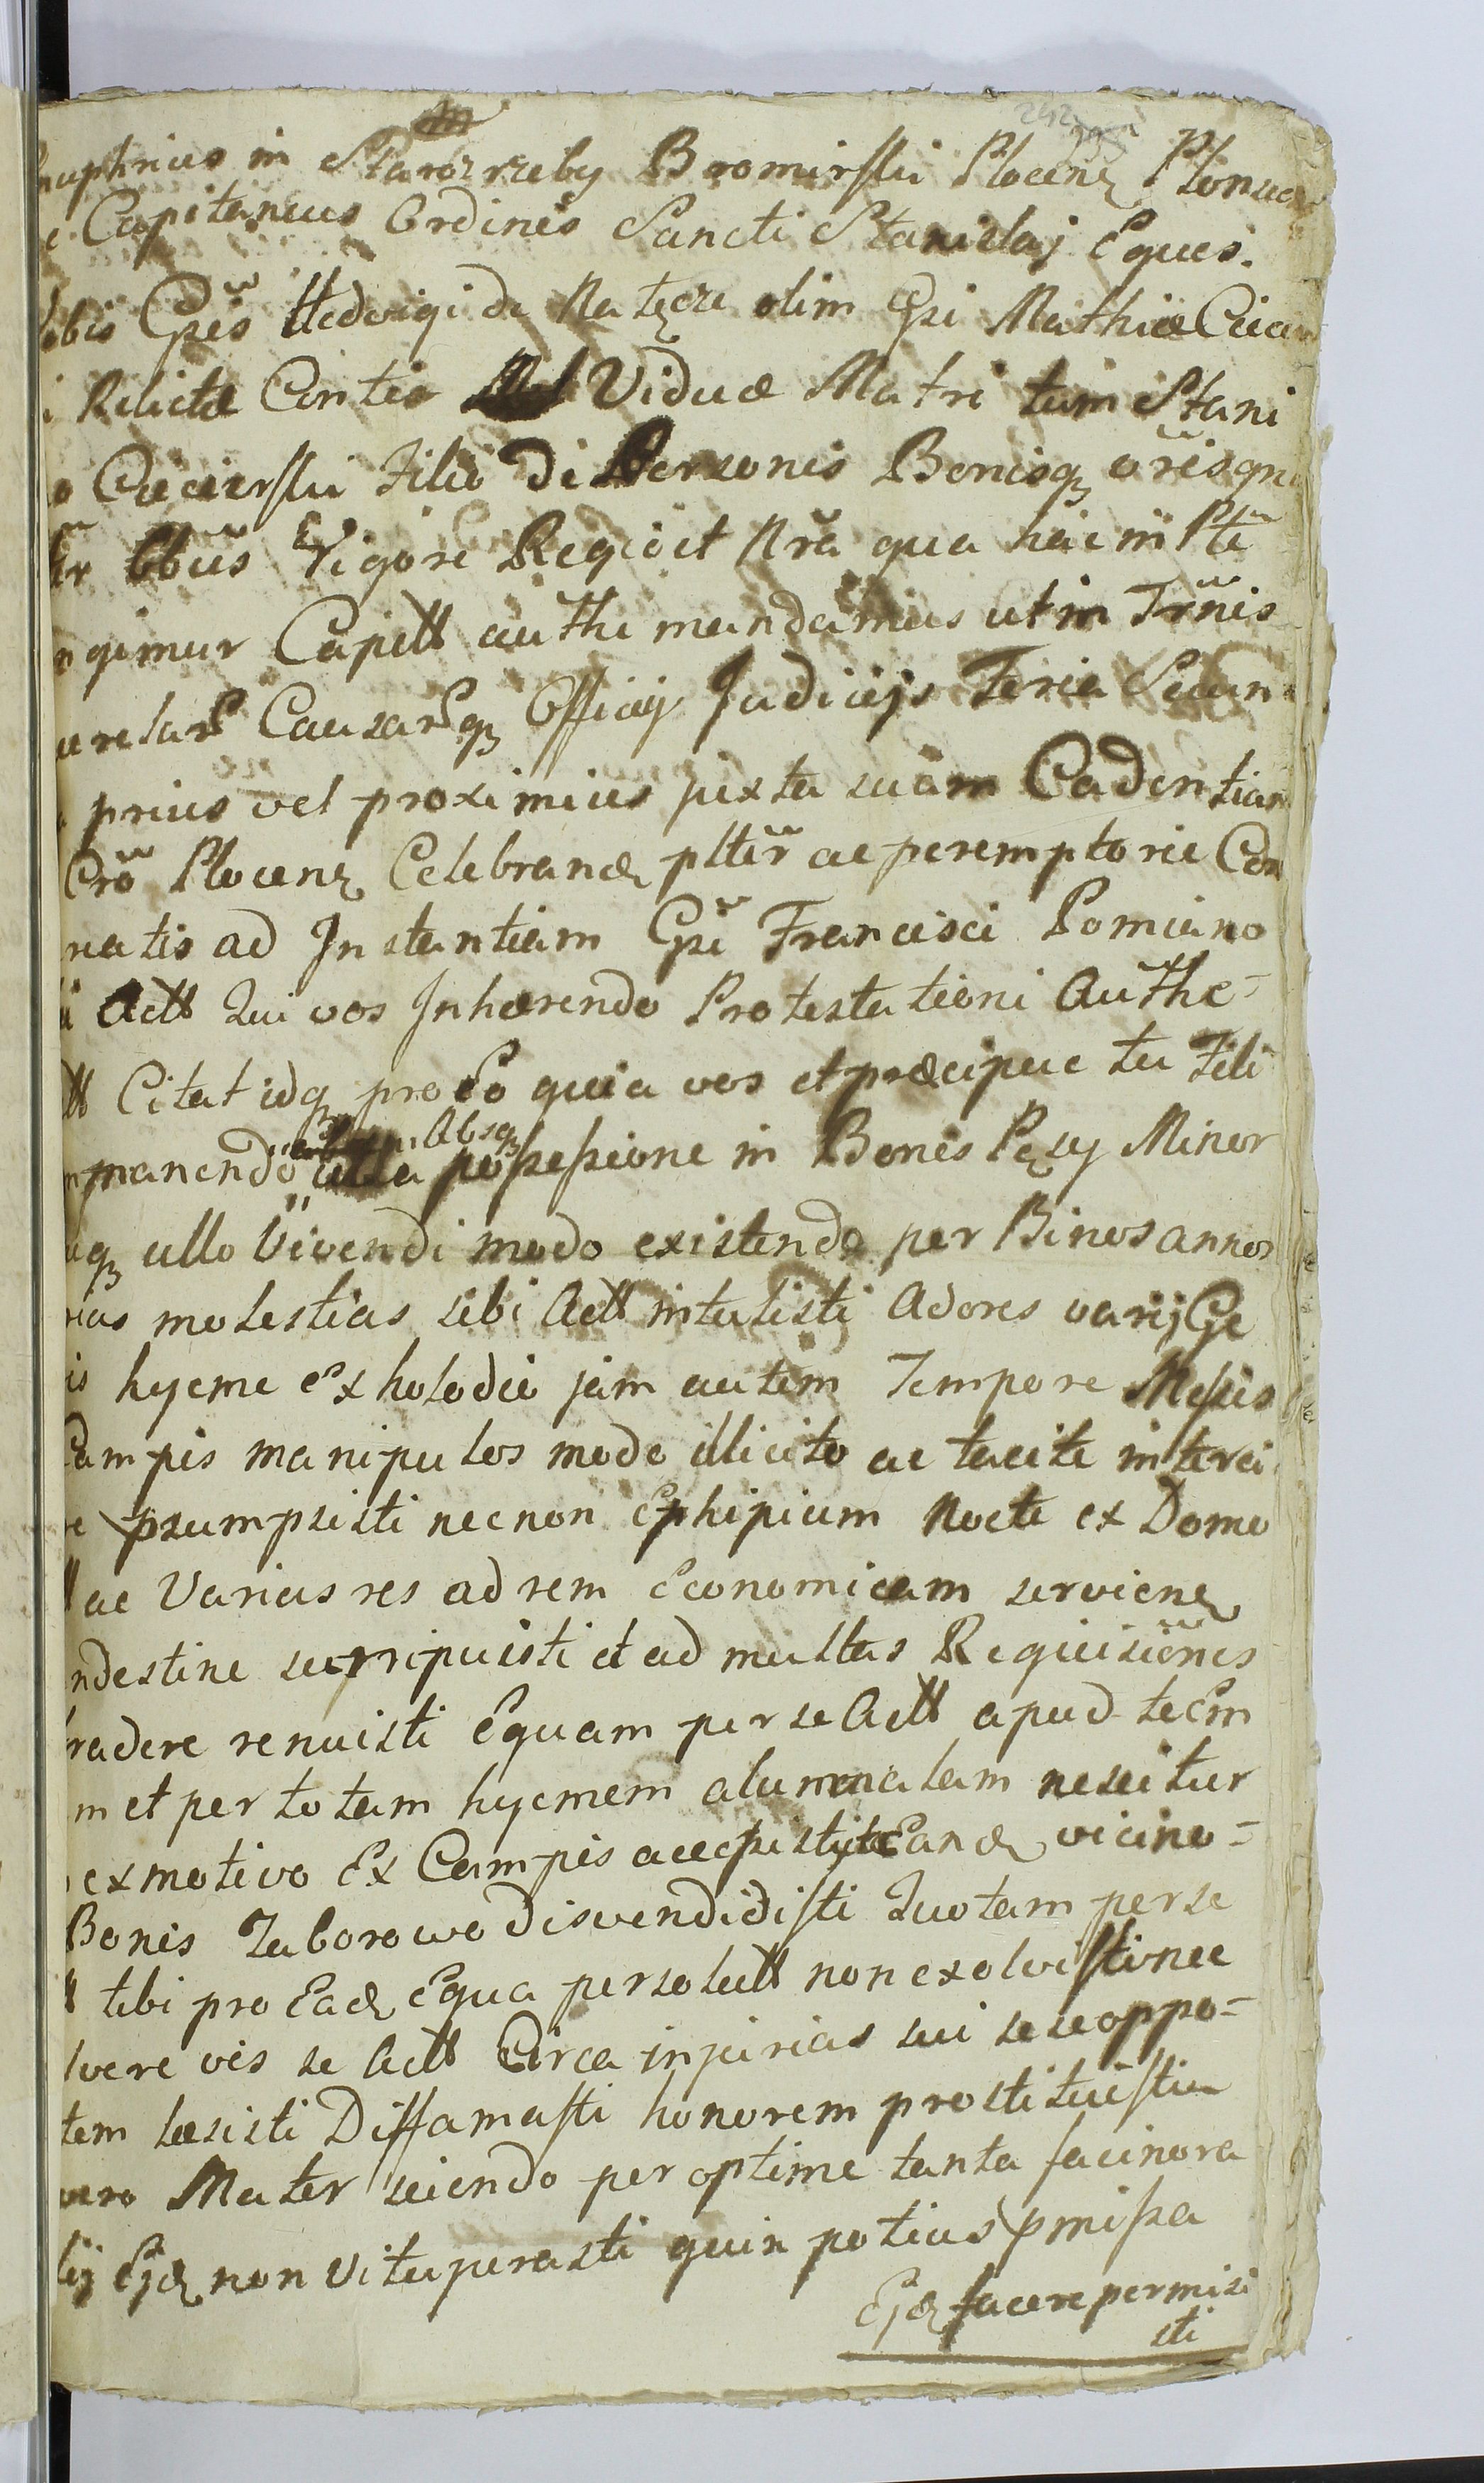 nuphrius in Starozrzeby Bromirski Plocenz Plonscen
e Capitaneus Ordinis Sancti Stanislaj Eques.
obis Gsis Hedvigi de Natęcze olim Gsi Mathiæ Cicier
i Relictæ Contio Viduæ Matri tum Stani
o Ciecierski Filio De Personis Bonisq orisqn
hr bbus Vigore Regio et Nra qua hac in Pte
ngimur Capitt auttte mandamus ut in Trnis
urelar Causarq Officij Judicijs Feria Secun
prius vel proximius juxta suam Cadentiam
Cro Plocenz Celebrand pltir ac peremptorie Com
reatis ad Instantiam Gsi Francisci Pomiano
i Actt Qui vos Inhærendo Protestationi Authe-
tt Citat idq pro Eo quia vos et præcipue tu Fili
mmanendo Absq ulla possessione in Bonis Pęsy Minor
uq ullo Vivendi modo existendo per Binos annos
rias molestias sibi Actt intulisti Adores varij Ge
is hyeme ex holodio jam autem Tempore Messis
Campis manipulos modo illicito ac tacite interci
e psumpsisti necnon Ephipium Nocte ex Domo
ac Varias res ad rem Economicam serviene
ndestine surripuisti et ad multas Requisiones
radere renuisti Equam per se Actt apud te Em
m et per totam hyemem alumnatam nescitur
ex motivo Ex Campis accepisti Eand vicino-
Bonis Zaborowo disvendidisti Quotam per se
tibi pro Ead Equa persolutt non exolvisti nec
lvere vis se Actt Circa injurias sui sese oppo-
tem læsisti Diffamasti honorem prostituisti
vero Mater sciendo per optime tanta facinora
lij Ejd non vituperasti quin potius pmissa
Ejd facere permisi
sti